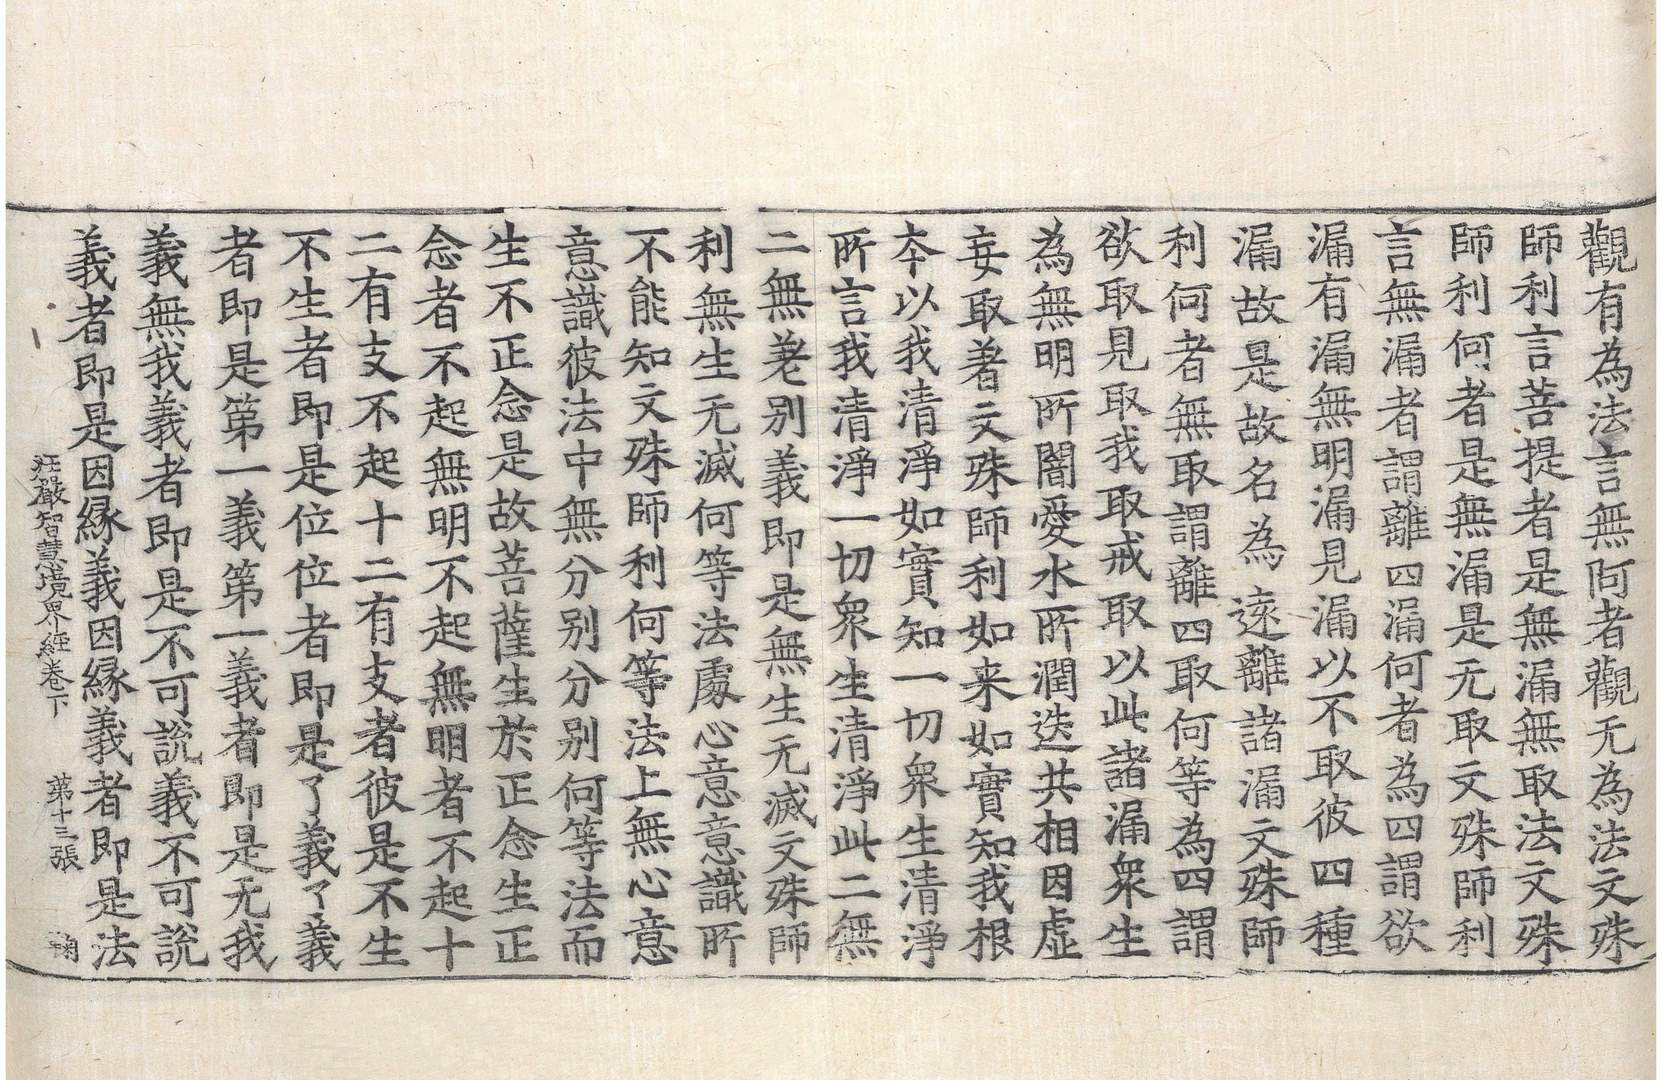 觀有為法言無阿者觀无為法文殊
師利言菩提者是無漏無取法文殊
師利何者是無漏是无取文殊師利
言無漏者謂離四漏何者為四謂欲
漏有漏無明漏見漏以不取彼四種
漏故是故名為遠離諸漏文殊師
利何者無取謂離四取何等為四謂
欲取見取我取戒取以此諸漏衆生
為無明所闇愛水所潤迭共相因虛
妄取著文殊師利如来如實知我根
本以我清淨如實知一切衆生清淨
所言我清淨一切衆生清淨此二無
二無差别義即是無生无滅文殊師
利無生无滅何等法處心意意識所
不能知文殊師利何等法上無心意
意識彼法中無分别分别何等法而
生不正念是故菩薩生於正念生正
念者不起無明不起無明者不起十
二有支不起十二有支者彼是不生
不生者即是位位者即是了義了義
者即是第一義第一義者即是无我
義無我義者即是不可說義不可說
義者即是因縁義因縁義者即是法
莊嚴智慧境界經卷下 第十三張